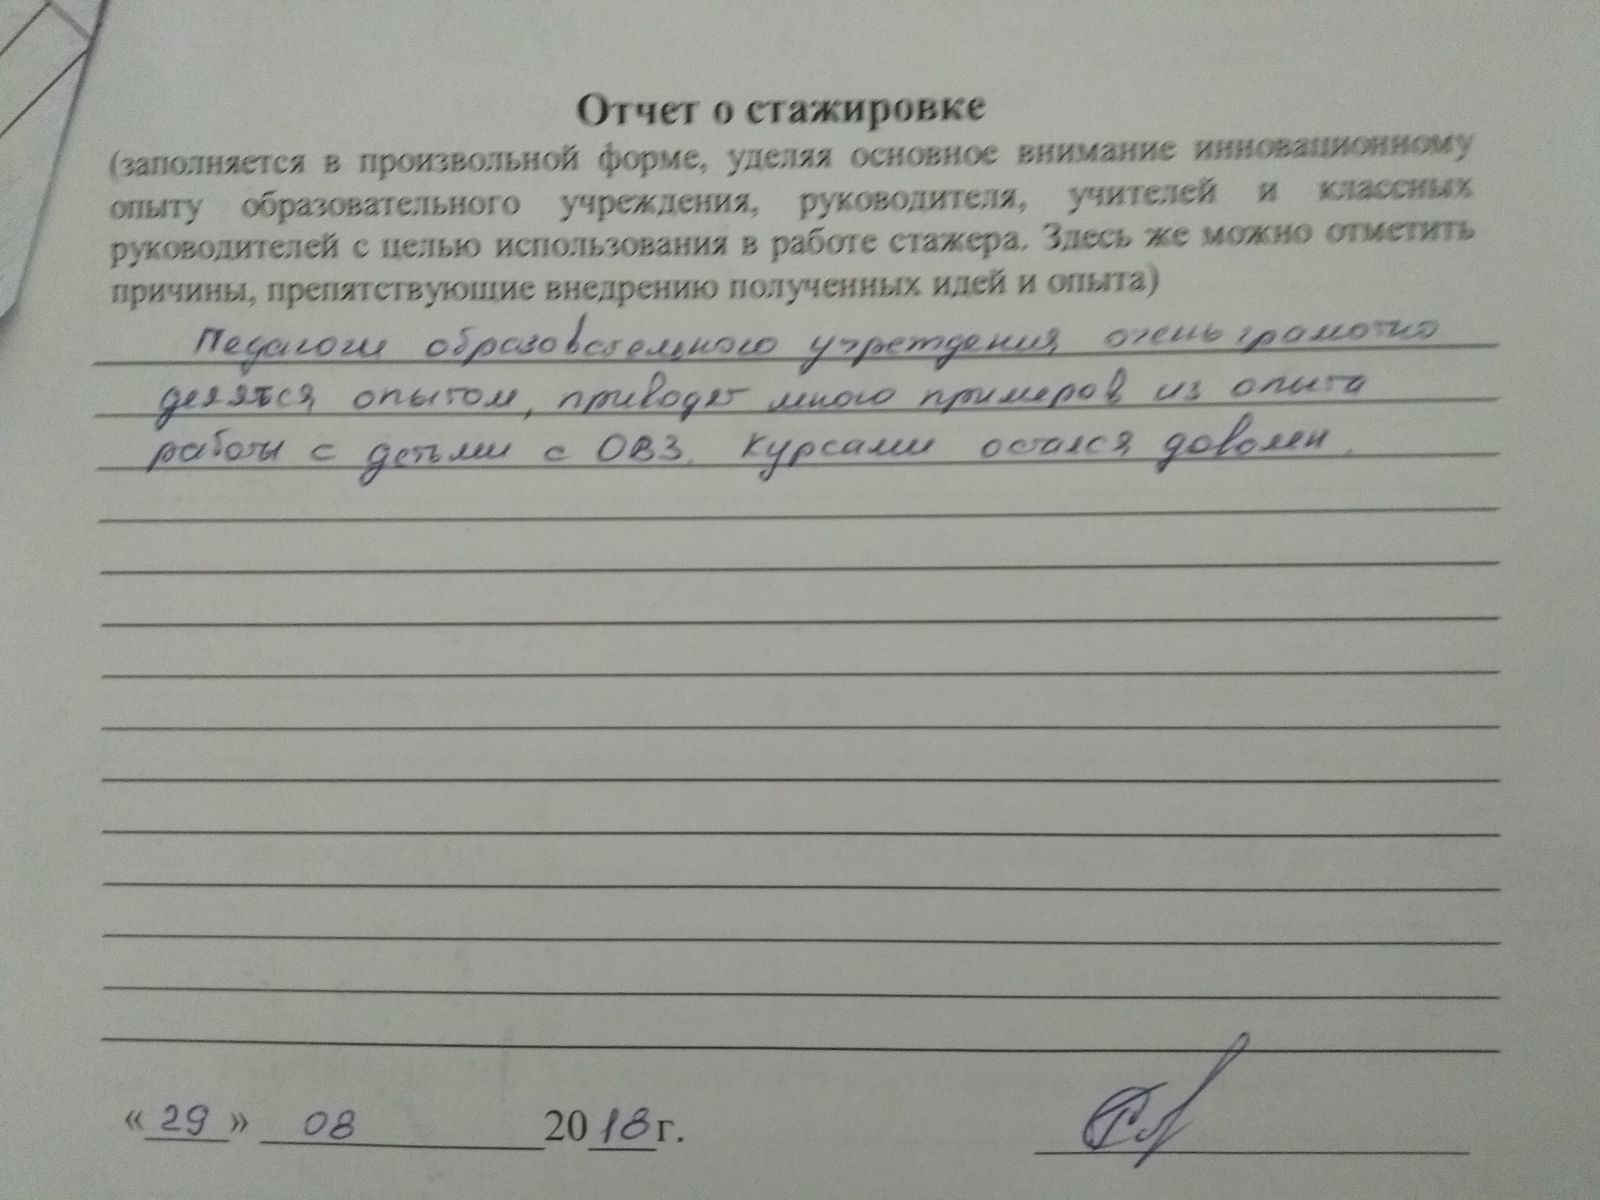 Отчет о стажировке
(заполняется в произвольной форме, уделяя основное внимание инновационному
опыту образовательного учреждения, руководителя, учителей и классных
руководителей с целью использования в работе стажера. Здесь же можно отметить
причины, препятствующие внедрению полученных идей и опыта)
Педагоги образовательного учреждения очень грамотно
делятся опытом, приводят много примеров из опыта
работы с детьми с ОВЗ. Курсами остался доволен.
«29» 08 2018г.